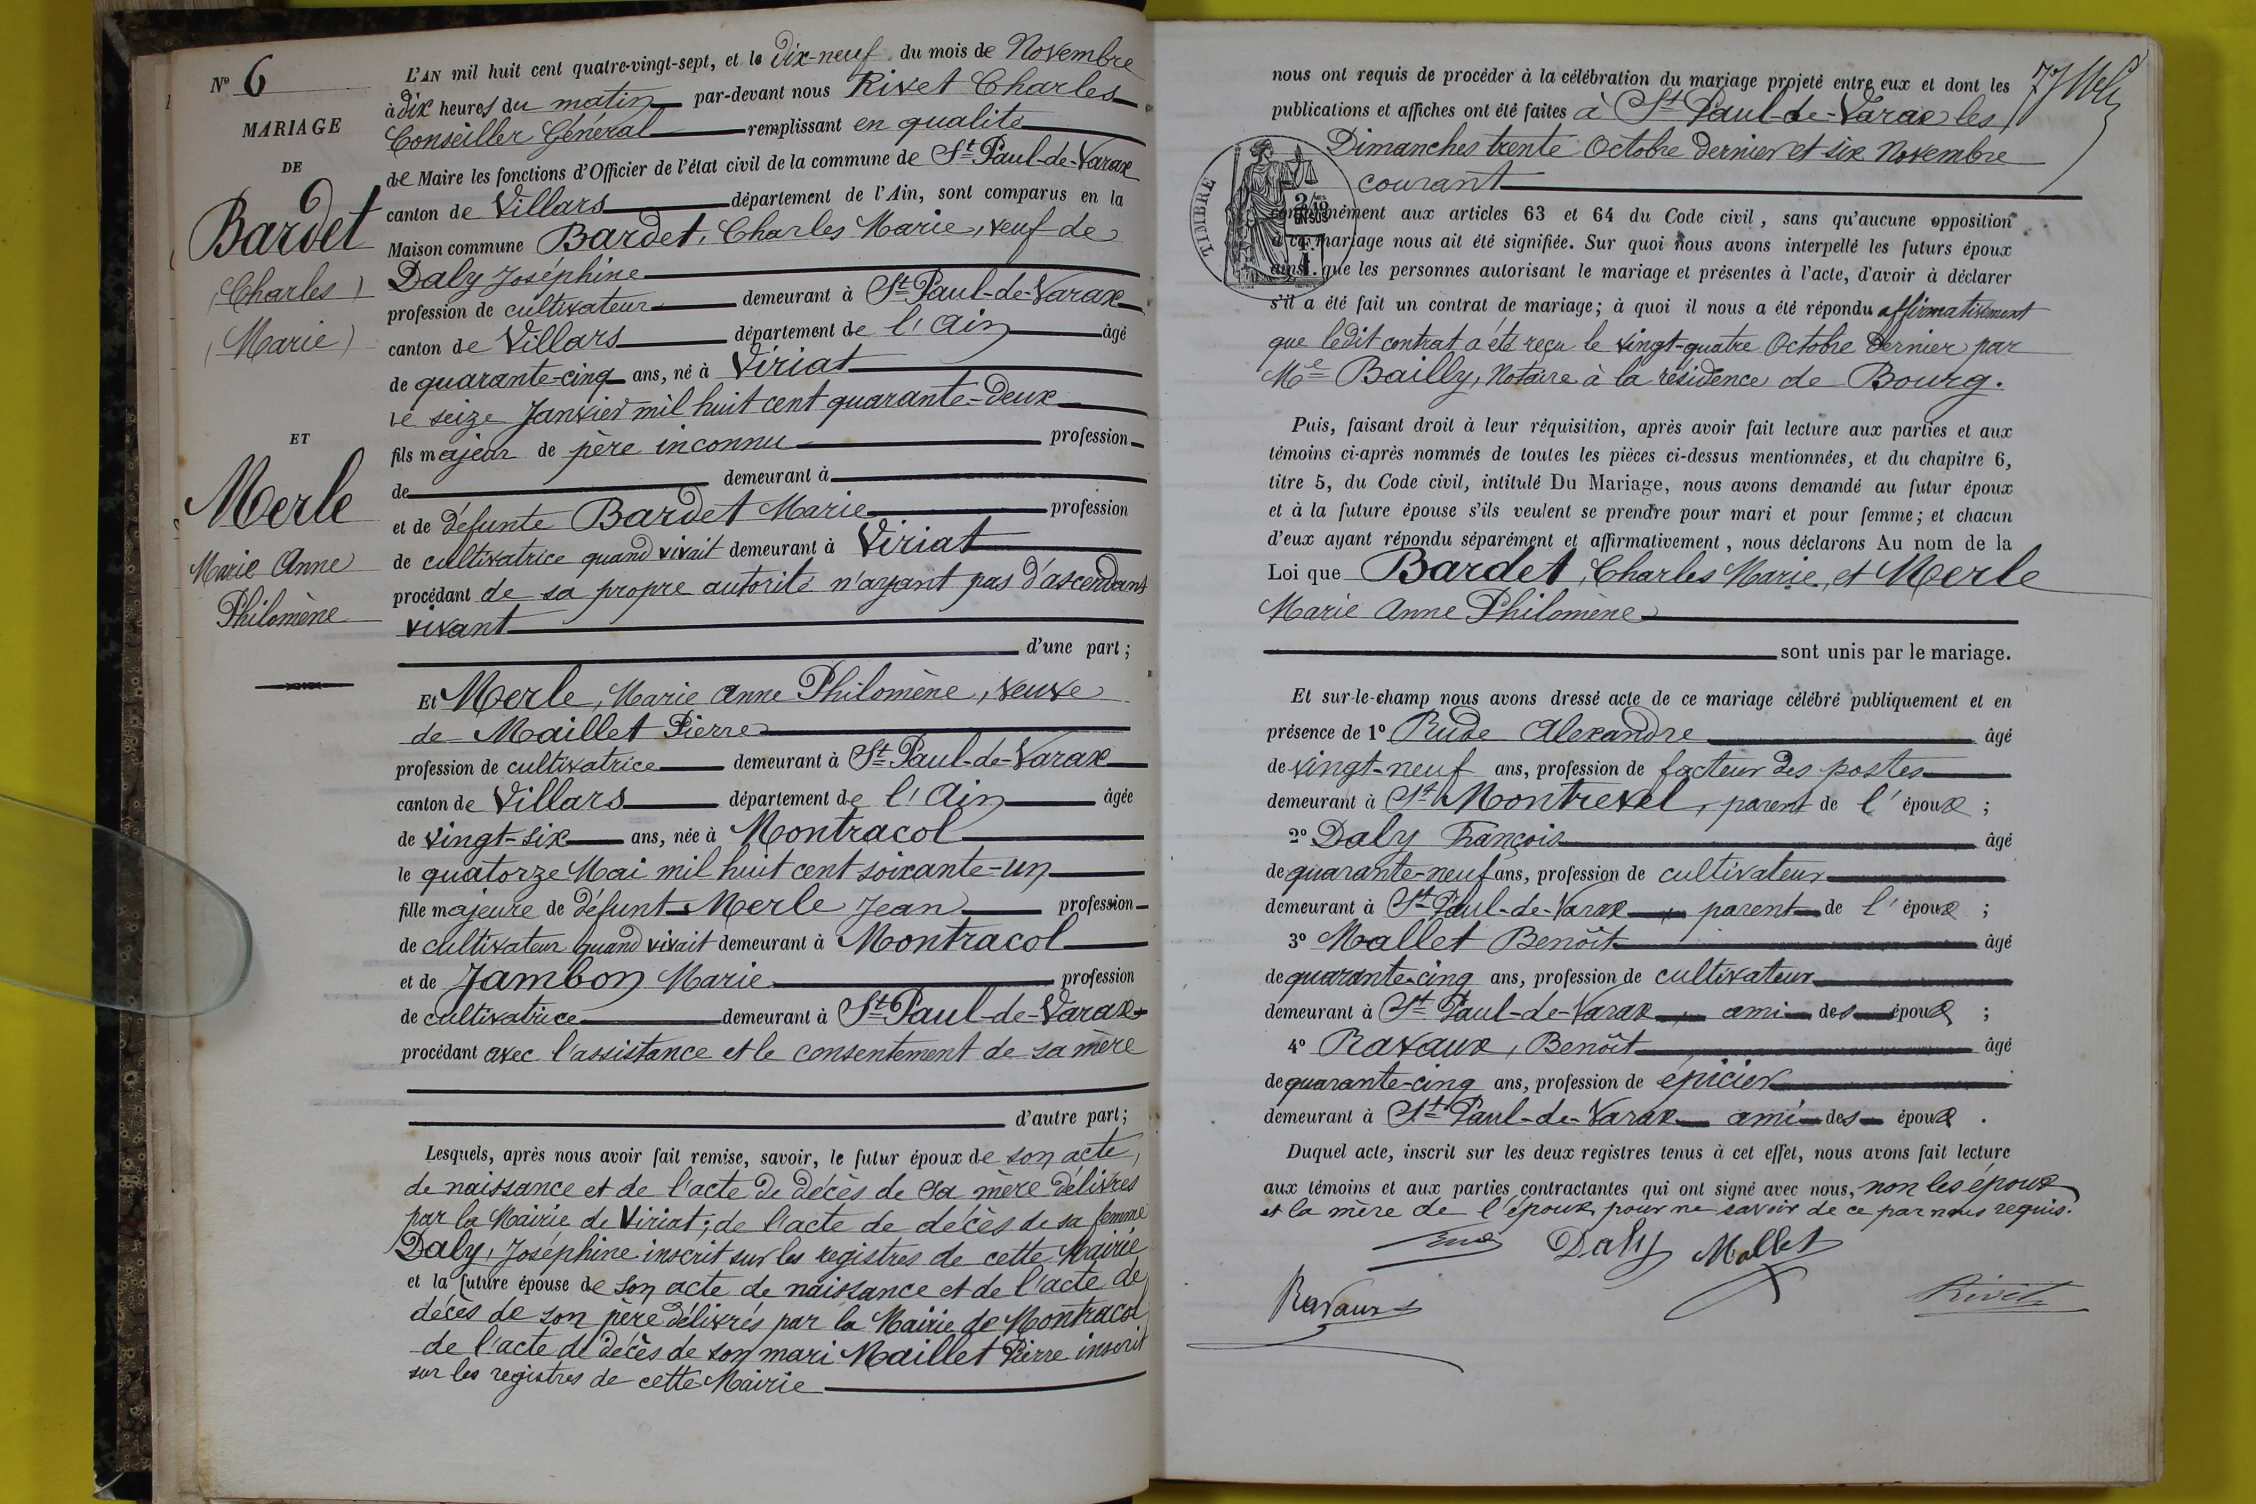 N° 6
MARIAGE
DE
Bardet
(Charles)
(Marie)
ET
Merle
Marie Anne
Philomène
L'AN mil huit cent quatre-vingt-sept, et le dix-neuf du mois de Novembre
à dix heures du matin par-devant nous Rivet Charles
Conseiller Général remplissant en qualité
de Maire les fonctions d'Officier de l'état civil de la commune de St Paul-de-Varax
canton de Villars département de l'Ain, sont comparus en la
Maison commune Bardet, Charles Marie, veuf de
Daly Joséphine
profession de cultivateur demeurant à St Paul-de-Varax
canton de Villars département de l'Ain âgé
de quarante-cinq ans, né à Viriat
le seize Janvier mil huit cent quarante-deux
fils majeur de père inconnu profession
de demeurant à
et de défunte Bardet Marie profession
de cultivatrice quand vivait demeurant à Viriat
procédant de sa propre autorité n'ayant pas d'ascendant
vivant
d'une part ;
Et Merle, Marie Anne Philomène, veuve
de Maillet Pierre
profession de cultivatrice demeurant à St Paul-de-Varax
canton de Villars département de l'Ain âgée
de vingt-six ans, née à Montracol
le quatorze Mai mil huit cent soixante-un
fille majeure de défunt Merle Jean profession
de cultivateur quand vivait demeurant à Montracol
et de Jambon Marie profession
de cultivatrice demeurant à St Paul-de-Varax
procédant avec l'assistance et le consentement de sa mère
d'autre part ;
Lesquels, après nous avoir fait remise, savoir, le futur époux de son acte
de naissance et de l'acte de décès de sa mère délivrés
par la Mairie de Viriat ; de l'acte de décès de sa femme
Daly, Joséphine inscrit sur les registres de cette Mairie
et la future épouse de son acte de naissance et de l'acte de
décès de son père délivrés par la Mairie de Montracol
de l'acte de décès de son mari Maillet Pierre inscrit
sur les registres de cette Mairie
nous ont requis de procéder à la célébration du mariage projeté entre eux et dont les
publications et affiches ont été faites à St Paul-de-Varax les
Dimanches trente Octobre dernier et six Novembre
courant
TIMBRE
conformément aux articles 63 et 64 du Code civil, sans qu'aucune opposition
à ce mariage nous ait été signifiée. Sur quoi nous avons interpellé les futurs époux
ainsi que les personnes autorisant le mariage et présentes à l'acte, d'avoir à déclarer
s'il a été fait un contrat de mariage ; à quoi il nous a été répondu affirmativement
que ledit contrat a été reçu le vingt-quatre Octobre dernier par
Me Bailly, Notaire à la résidence de Bourg.
Puis, faisant droit à leur réquisition, après avoir fait lecture aux parties et aux
témoins ci-après nommés de toutes les pièces ci-dessus mentionnées, et du chapitre 6,
titre 5, du Code civil, intitulé Du Mariage, nous avons demandé au futur époux
et à la future épouse s'ils veulent se prendre pour mari et pour femme ; et chacun
d'eux ayant répondu séparément et affirmativement, nous déclarons Au nom de la
Loi que Bardet, Charles Marie, et Merle
Marie Anne Philomène
sont unis par le mariage.
Et sur-le-champ nous avons dressé acte de ce mariage célébré publiquement et en
présence de 1° Rude Alexandre âgé
de vingt-neuf ans, profession de facteur des postes
demeurant à St Montrevel, parent de l'époux ;
2° Daly François âgé
de quarante-neuf ans, profession de cultivateur
demeurant à St Paul-de-Varax parent de l'époux ;
3° Mallet Benoît âgé
de quarante-cinq ans, profession de cultivateur
demeurant à St Paul-de-Varax ami des époux ;
4° Ravaux, Benoît âgé
de quarante-cinq ans, profession de épicier
demeurant à St Paul-de-Varax ami des époux .
Duquel acte, inscrit sur les deux registres tenus à cet effet, nous avons fait lecture
aux témoins et aux parties contractantes qui ont signé avec nous, non les époux
et la mère de l'époux pour ne savoir de ce par nous requis.
Daly Mallet
Ravaux
Rivet